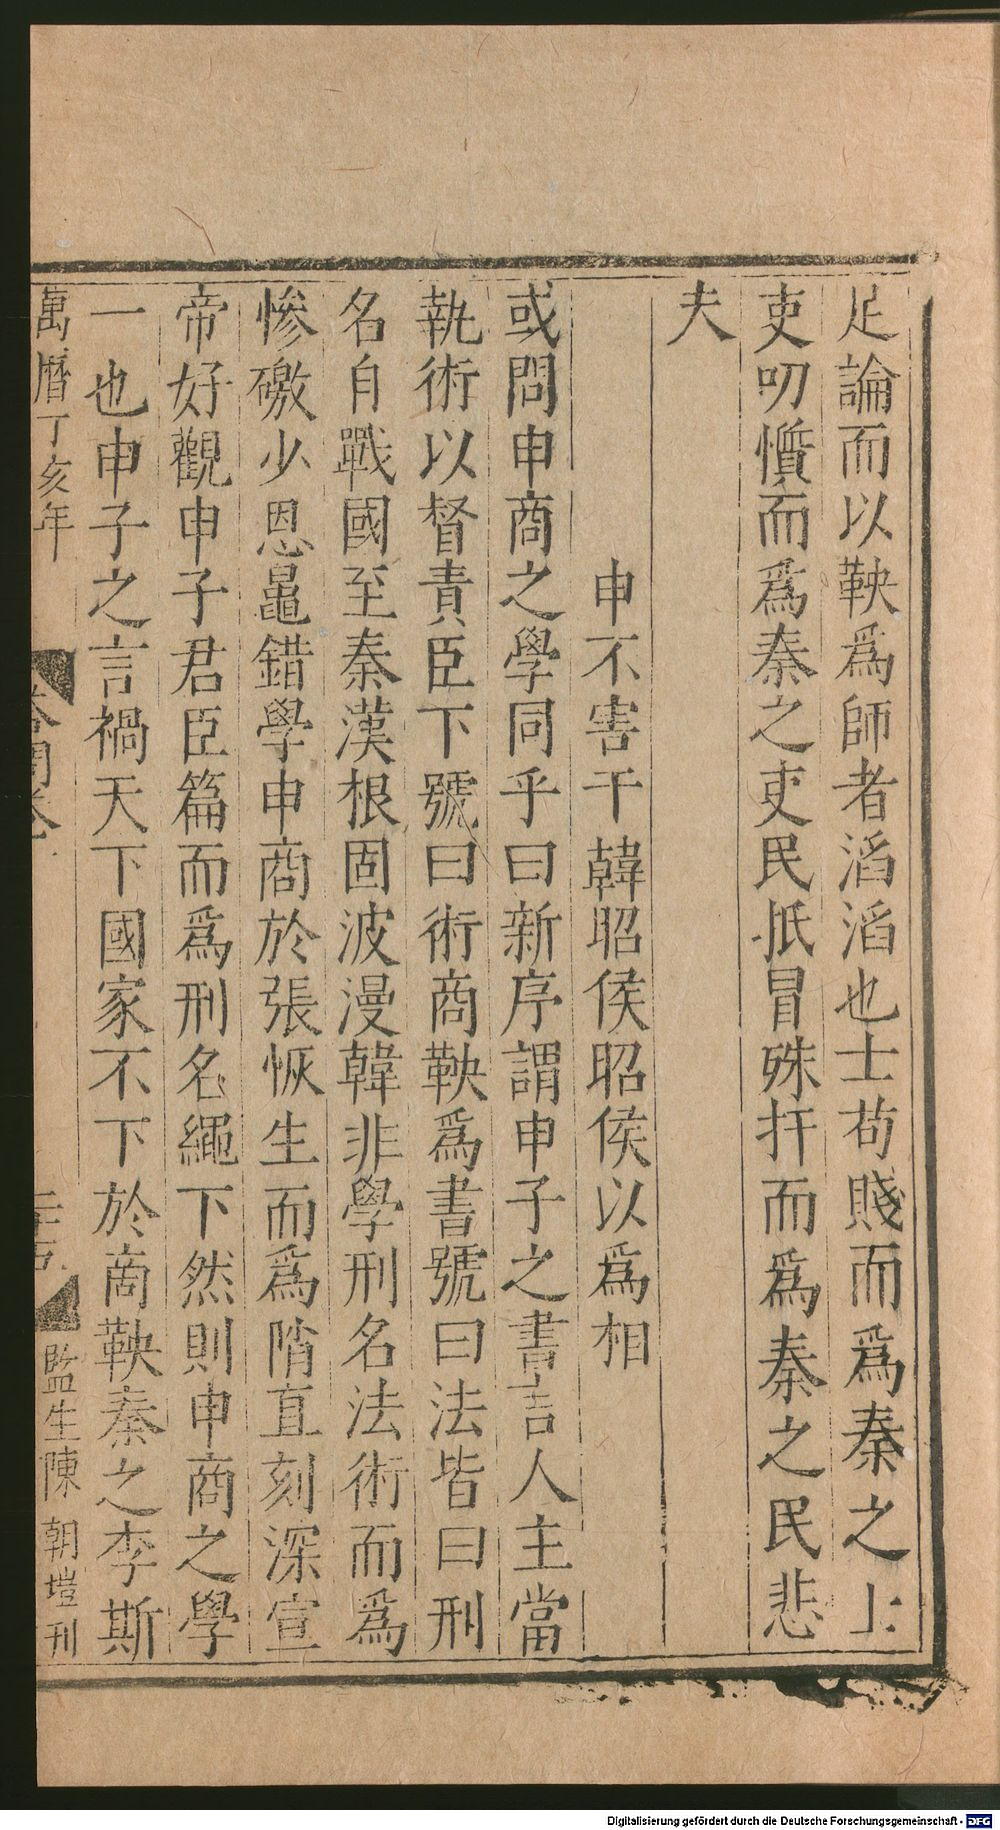 足論而以鞅爲師者滔滔也士苟賤而爲秦之士
吏叨懫而爲秦之吏民抵冒殊扞而爲秦之民悲
夫
申不害干韓昭侯昭侯以爲相
或問申商之學同乎曰新序謂申子之書言人主當
執術以督責臣下號曰術商鞅爲書號曰法皆曰刑
名自戰國至秦漢根固波漫韓非學刑名法術而爲
慘礉少恩鼂錯學申商於張恢生而爲陗直刻深宣
帝好觀申子君臣篇而爲刑名繩下然則申商之學
一也申子之言禍天下國家不下於商鞅秦之李斯
萬曆丁亥年
答問卷
監生陳朝塏刊
Digitalisierung gefördert durch die Deutsche Forschungsgemeinschaft - DFG